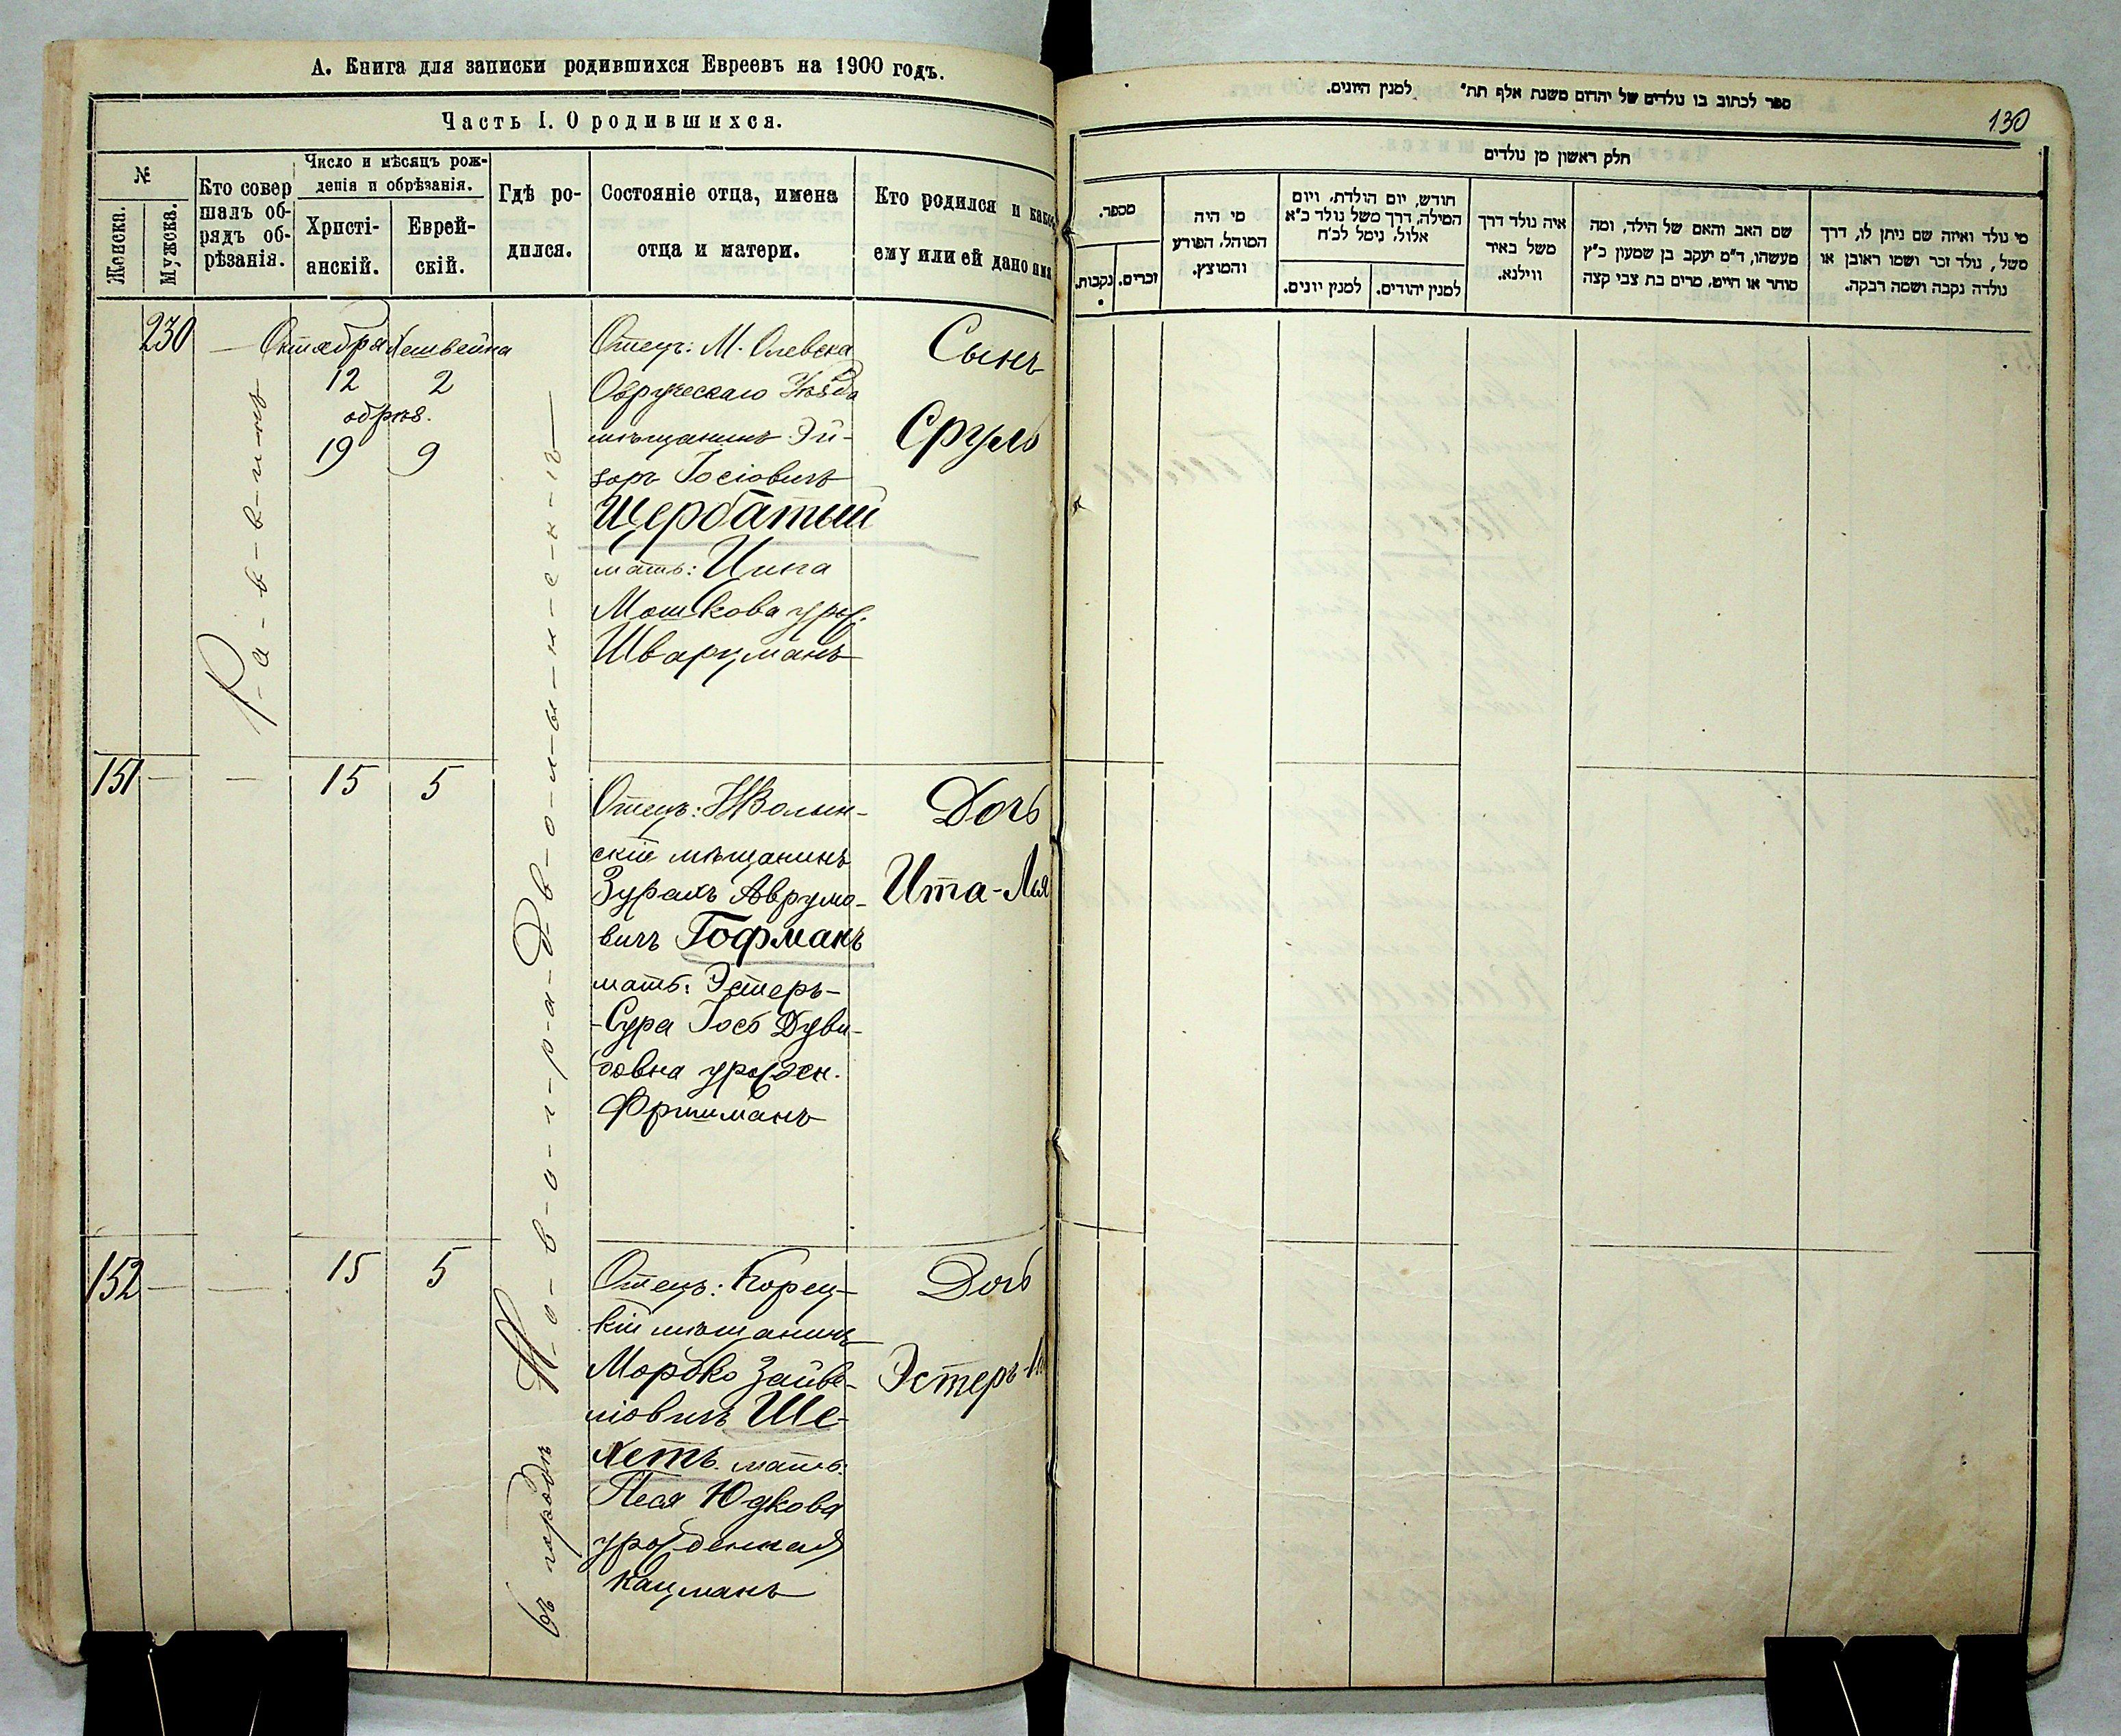 А. Книга для записки родившихся Евреевъ на 1900 годъ.
Часть I. О родившихся.
№
Женска.
Мужска.
Кто совер
шалъ об-
рядъ об-
рѣзанія.
Число и мѣсяцъ рож-
денія и обрѣзанія.
Христі-
анскій.
Еврей-
скій.
Гдѣ ро-
дился.
Состояніе отца, имена
отца и матери.
Кто родился и какое
ему или ей дано имя
230
Р-а-в-в-и-нъ
Октября Хешвейна
12 2
обрѣз.
19 9
въ городѣ Н-о-в-о-г-р-а-д-в-о-л-ы-н-с-к-ѣ
Отецъ: М. Олевска
Овруческаго Уѣзда
мѣщанинъ Эй-
зоръ Іосіовичъ
Щербатый
мать: Ципа
Мошкова урж.
Шварцманъ
Сынъ
Сруль
151 — — 15 5
Отецъ: НВолын-
скій мѣщанинъ
Зурахъ Аврумо-
вичъ Гофманъ
мать: Эстеръ-
-Сура Іосъ Дуви-
довна урожден.
Фришманъ
Дочь
Ита-Лея
152 — — 15 5
Отецъ: Корец-
кій мѣщанинъ
Мордко Зайве-
ліовичъ Ше-
хетъ мать:
Песя Юдкова
урожденная
Кацманъ
Дочь
Эстеръ-
ספר לכתוב בו נולדים של יהדים משנת אלף תת״ למנין היונים.
130
חלק ראשון מן נולדים
מספר.
נקבות.
זכרים.
מי היה
המוהל, הפורע
והמוצץ.
חודש, יום הולדת, ויום
המילה, דרך משל נולד כ״א
אלול, נימל לכ״ח
למנין יונים.
למנין יהודים.
איה נולד דרך
משל באיר
ווילנא.
שם האב והאם של הילד, ומה
מעשהו, ד״מ יעקב בן שמעון כ״ץ
סוחר או חייט, מרים בת צבי קצה
מי נולד ואיזה שם ניתן לו, דרך
משל, נולד זכר ושמו ראובן או
נולדה נקבה ושמה רבקה.